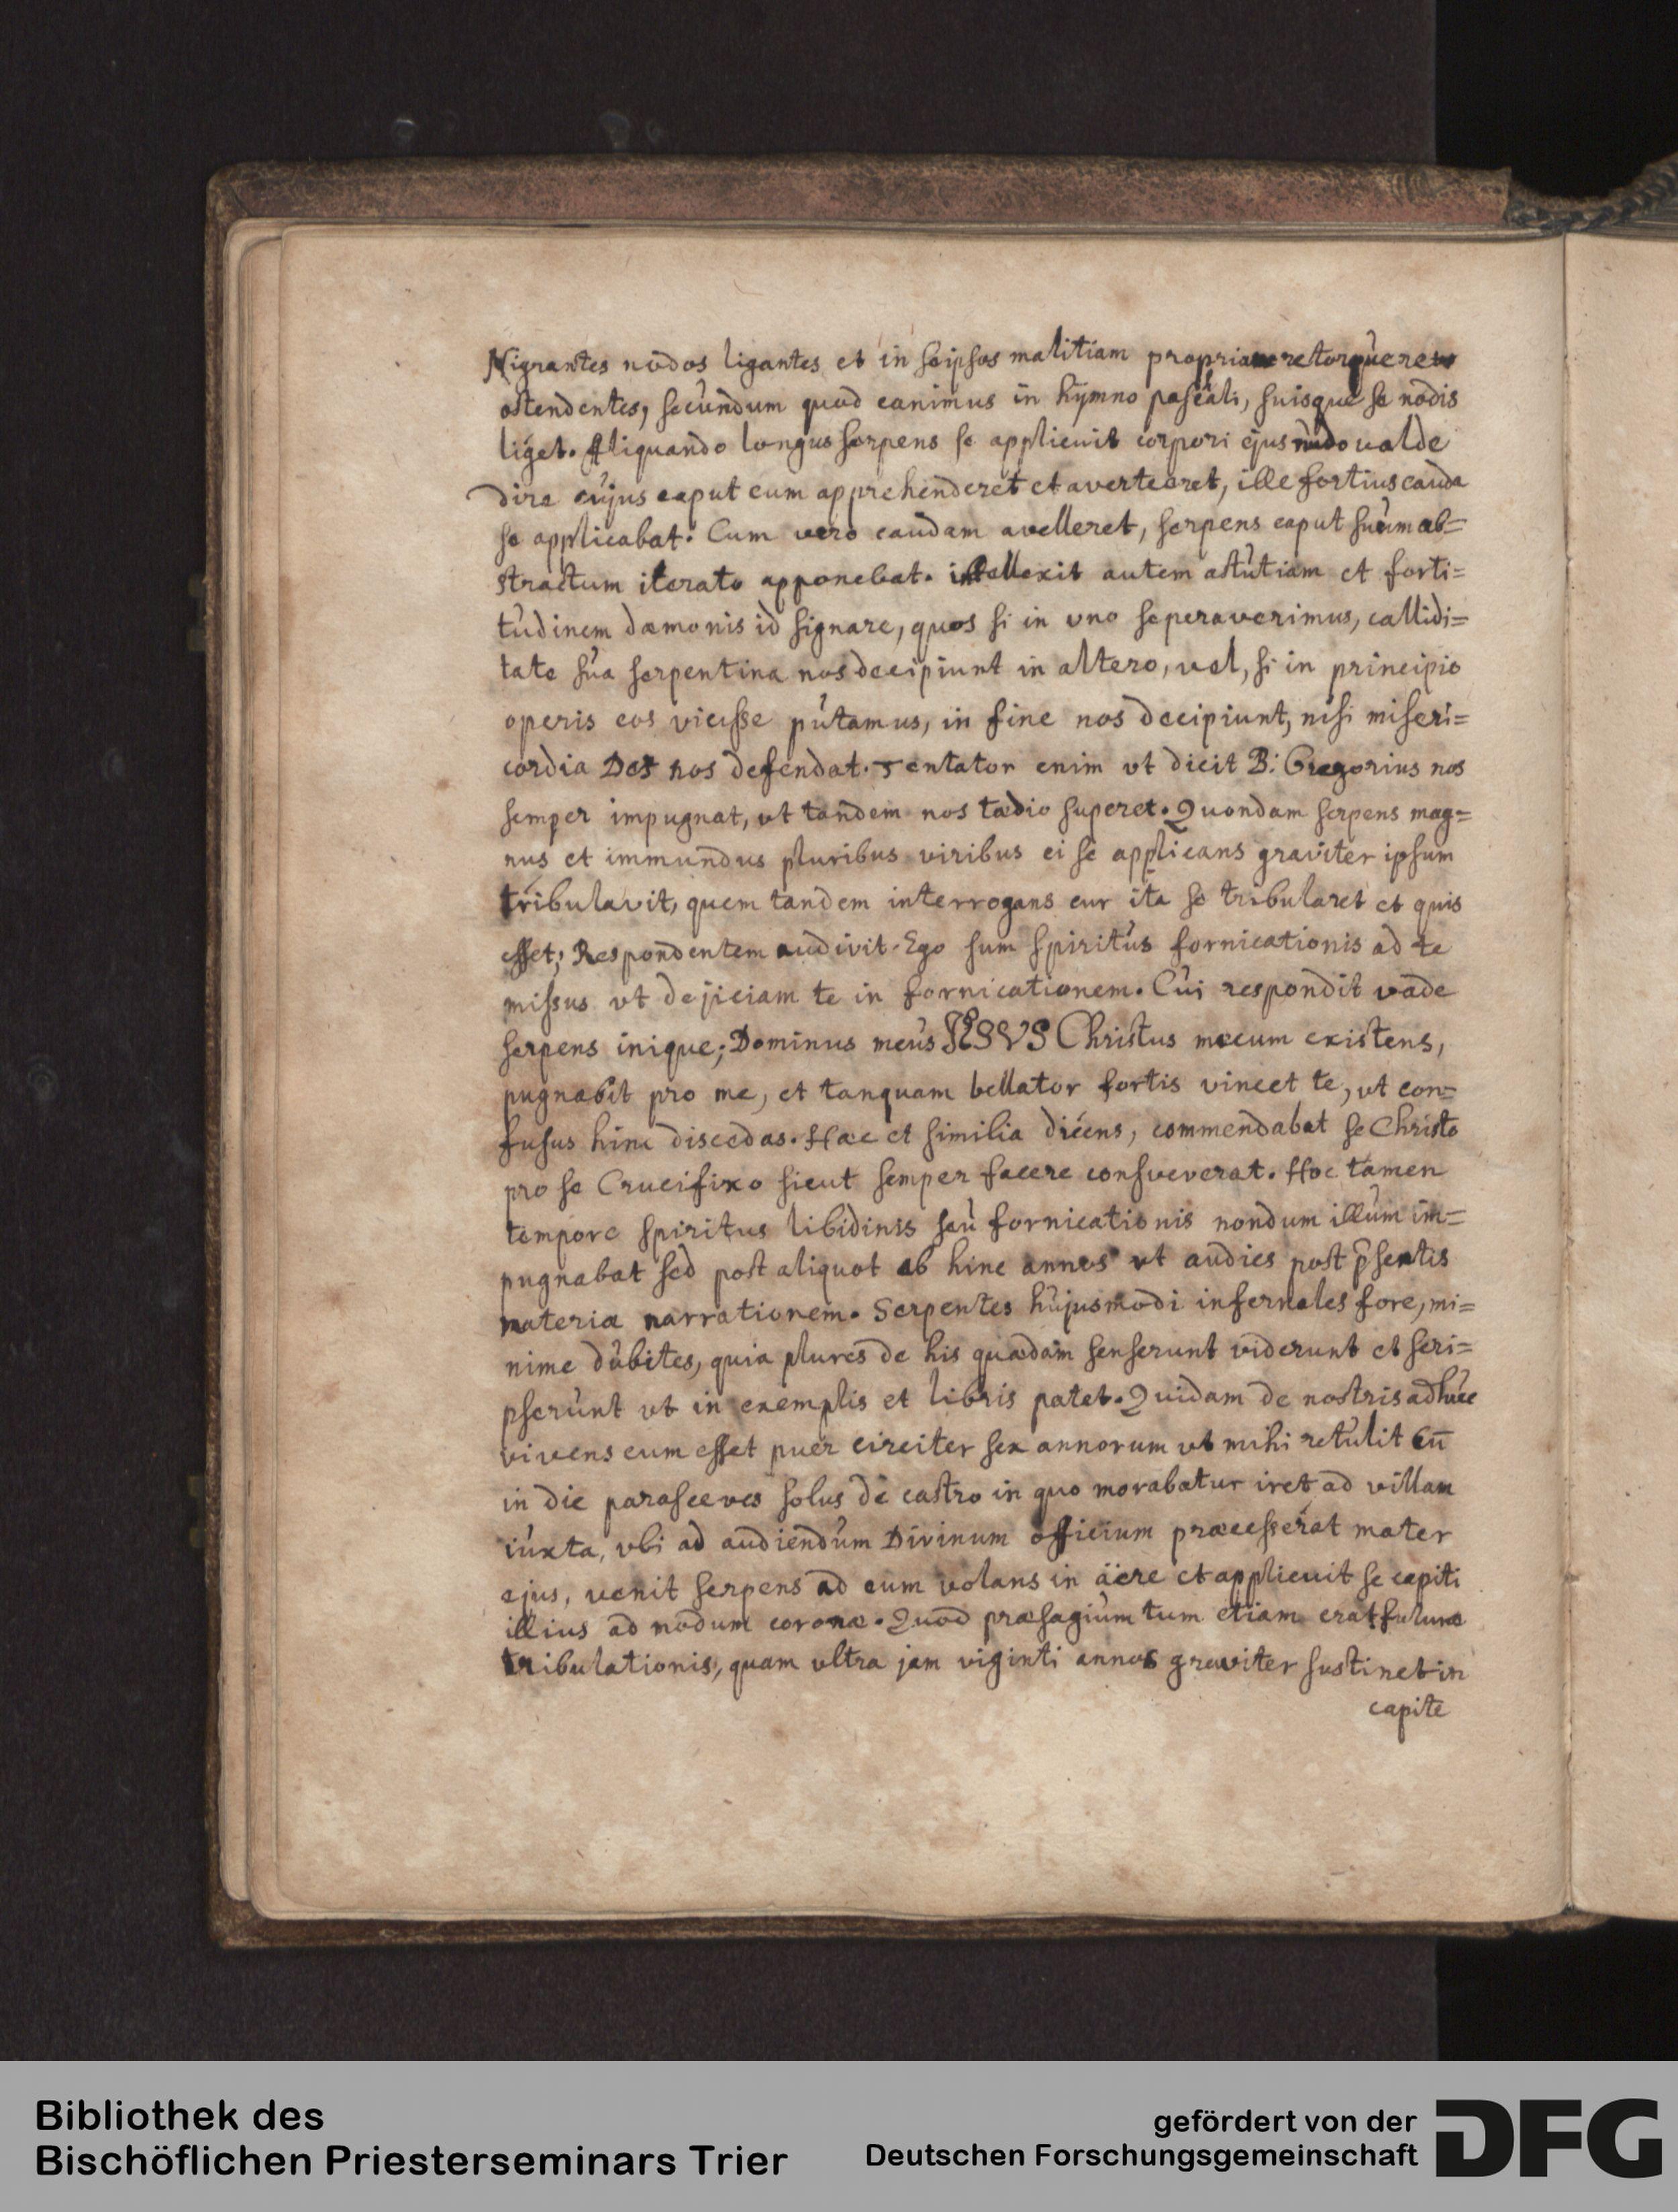 Nigrantes nodos ligantes et in seipsos malitiam propriam retorquere
ostendentes, secundum quod canimus in hymno pascali, suisque se nodis
liget. Aliquando longus serpens se applicuit corpori ejus nudo valde
dire cujus caput cum apprehenderet et averteret, ille fortius cauda
se applicabat. Cum vero caudam avelleret, serpens caput suum ab=
stractum iterato apponebat. intellexit autem astutiam et forti=
tudinem dæmonis id signare, quos si in uno seperaverimus, callidi=
tate sua serpentina nos decipiunt in altero, vel, si in principio
operis eos vicisse putamus, in fine nos decipiunt, nisi miseri=
cordia Dei nos defendat. Tentator enim vt dicit B: Gregorius nos
semper impugnat, vt tandem nos tædio superet. Quondam serpens mag=
nus et immundus pluribus viribus ei se applicans graviter ipsum
tribulavit, quem tandem interrogans cur ita se tribularet et quis
esset; Respondentem audivit. Ego sum spiritus fornicationis ad te
missus vt dejiciam te in fornicationem. Cui respondit vade
serpens inique; Dominus meus JESVS Christus mecum existens,
pugnabit pro me, et tanquam bellator fortis vincet te, vt con=
fusus hinc discedas. Hæc et similia dicens, commendabat se Christo
pro se Crucifixo sicut semper facere consveverat. Hoc tamen
tempore spiritus libidinis seu fornicationis nondum illum im=
pugnabat sed post aliquot ab hinc annos vt audies post p̄sentis
materiæ narrationem. Serpentes hujusmodi infernales fore, mi=
nime dubites, quia plures de his quædam senserunt viderunt et scri=
pserunt vt in exemplis et libris patet. Quidam de nostris adhuc
vivens cum esset puer circiter sex annorum vt mihi retulit cū
in die parasceves solus de castro in quo morabatur iret ad villam
iuxta, vbi ad audiendum Divinum officium præcesserat mater
ejus, venit serpens ad eum volans in äere et applicuit se capiti
illius ad modum coronæ. Quod præsagium tum etiam erat futuræ
tribulationis, quam vltra jam viginti annos graviter sustinet in
capite
Bibliothek des
Bischöflichen Priesterseminars Trier
gefördert von der
Deutschen Forschungsgemeinschaft
DFG